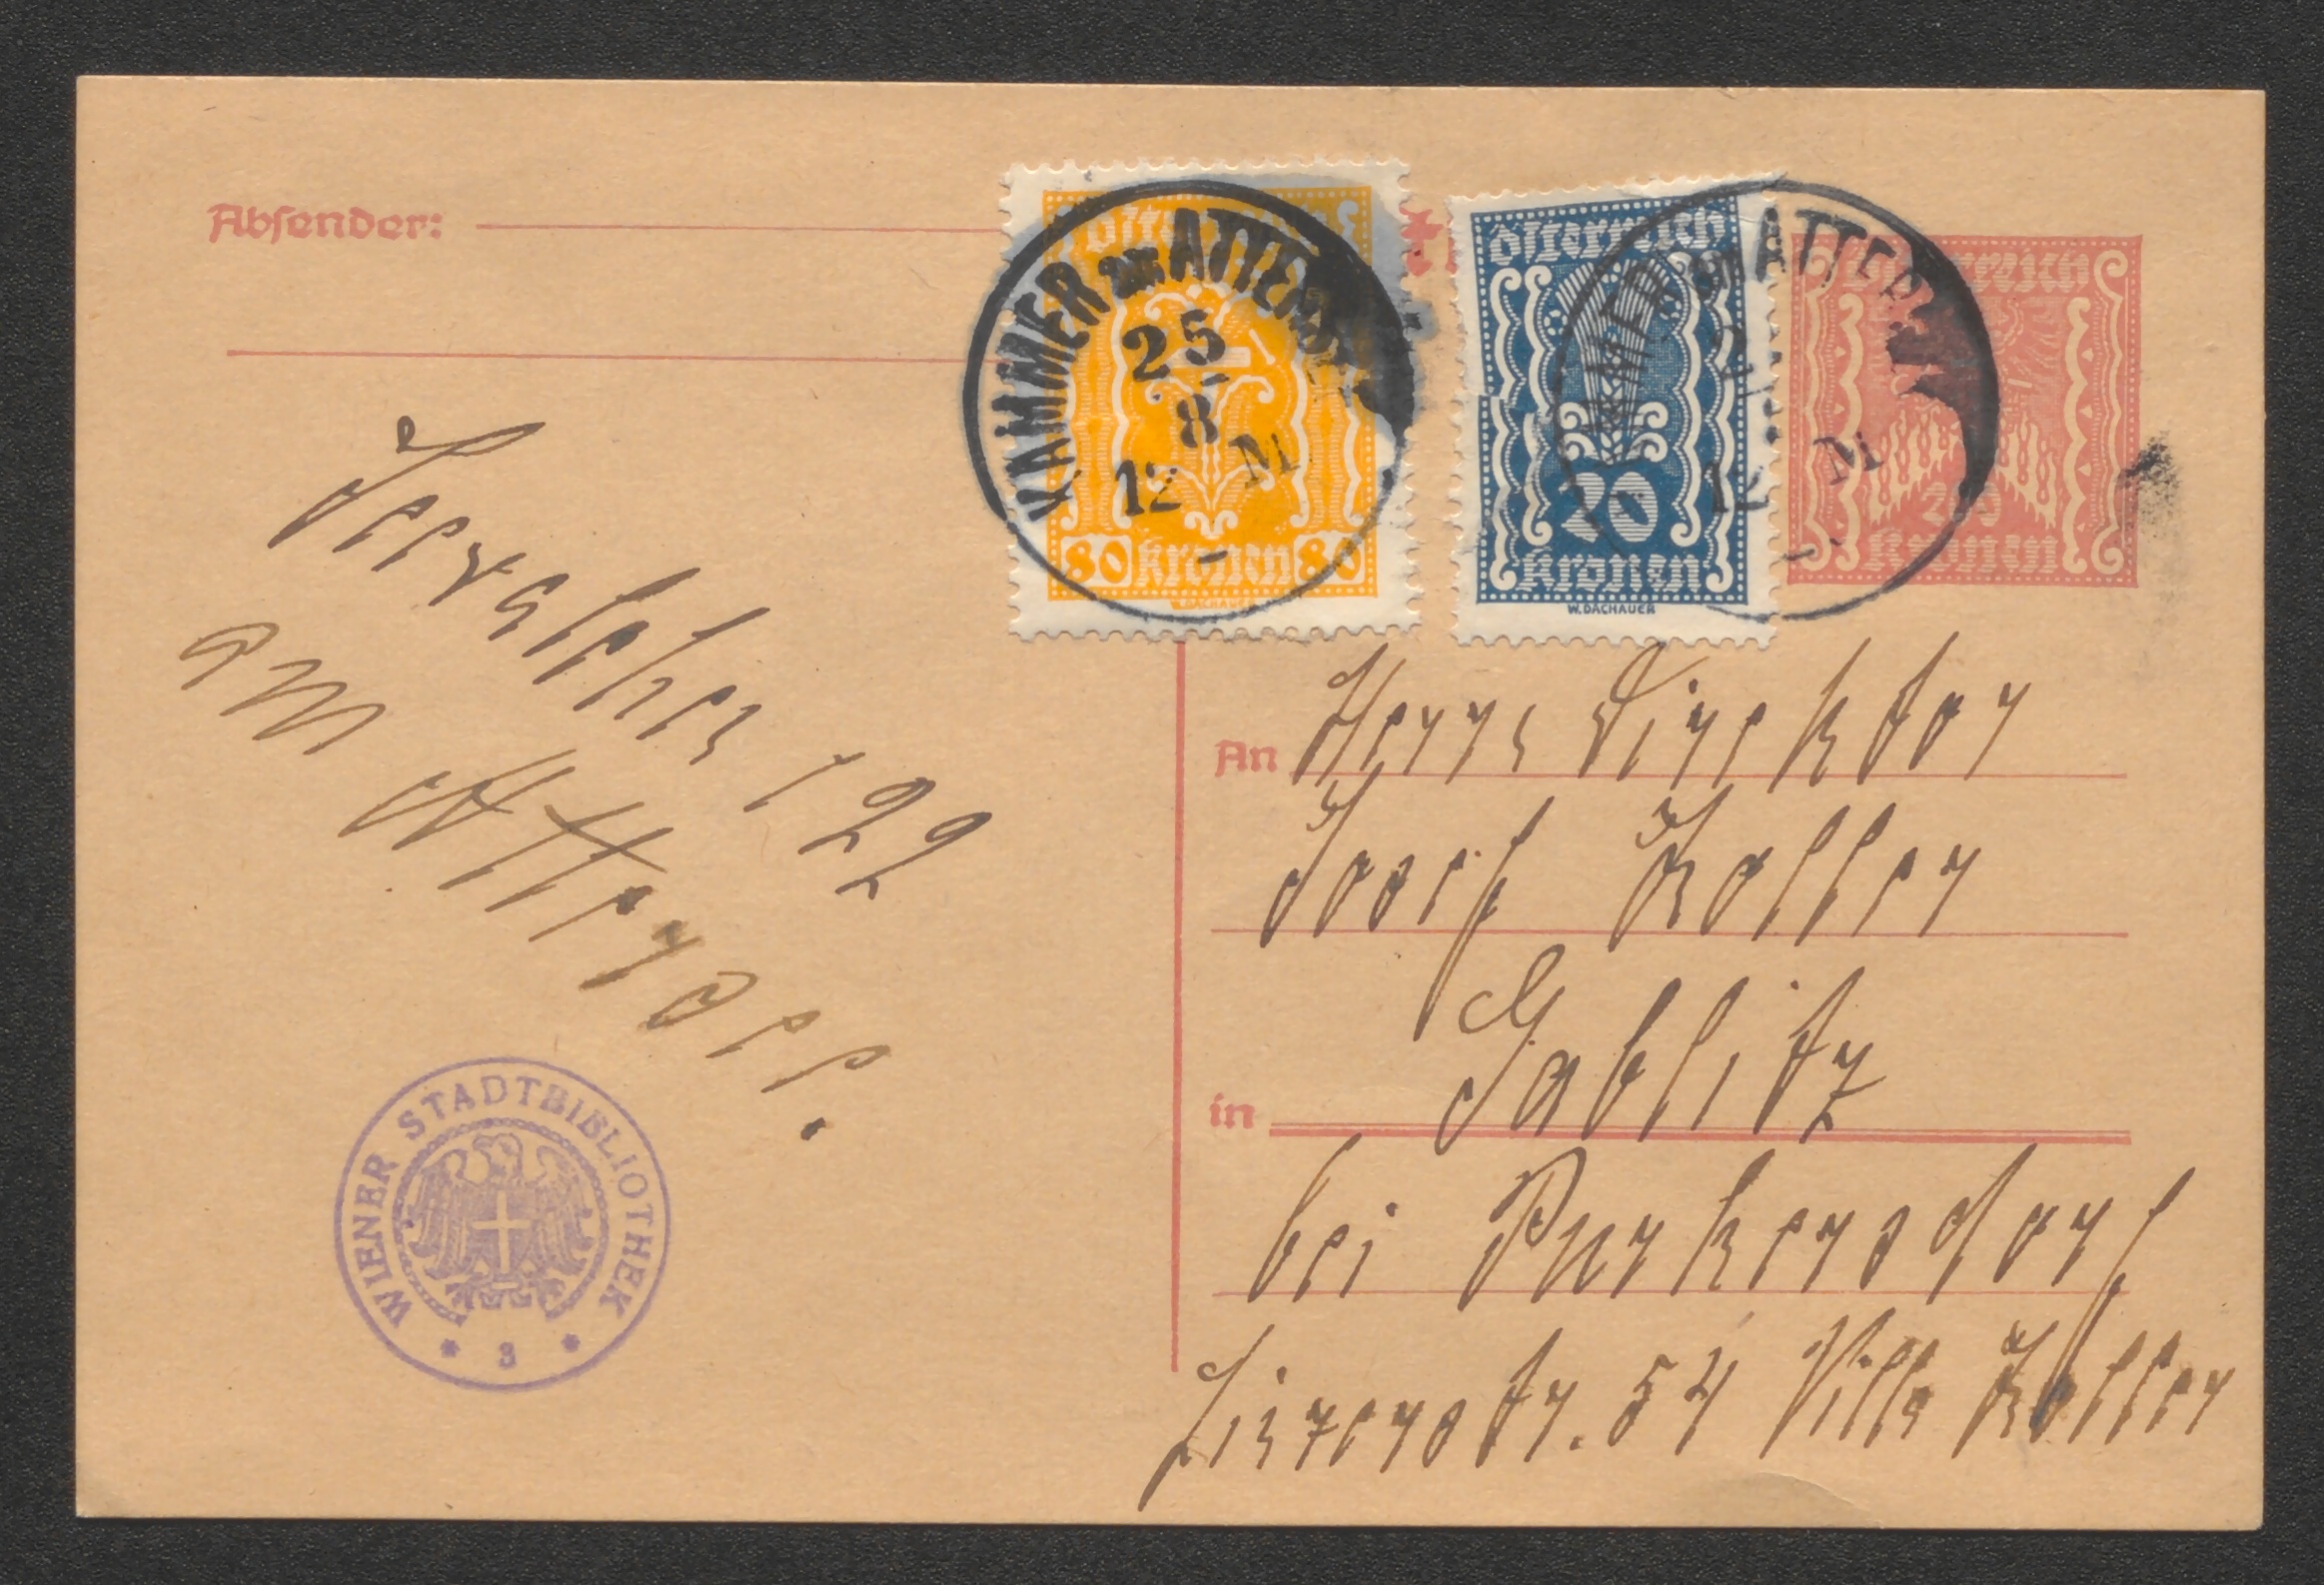 Absender:
Österreich
80 Kronen 80
W. DACHAUER
KAMMER AM ATTERSEE
25
8
12 M
Österreich
20
Kronen
W. DACHAUER
Österreich
Kronen
12 M
Seewalchen 122
am Attersee.
An Herrn Direktor
Josef Koller
in Gablitz
bei Purkersdorf
Linzerstr. 54 Villa Koller
WIENER STADTBIBLIOTHEK
* 3 *